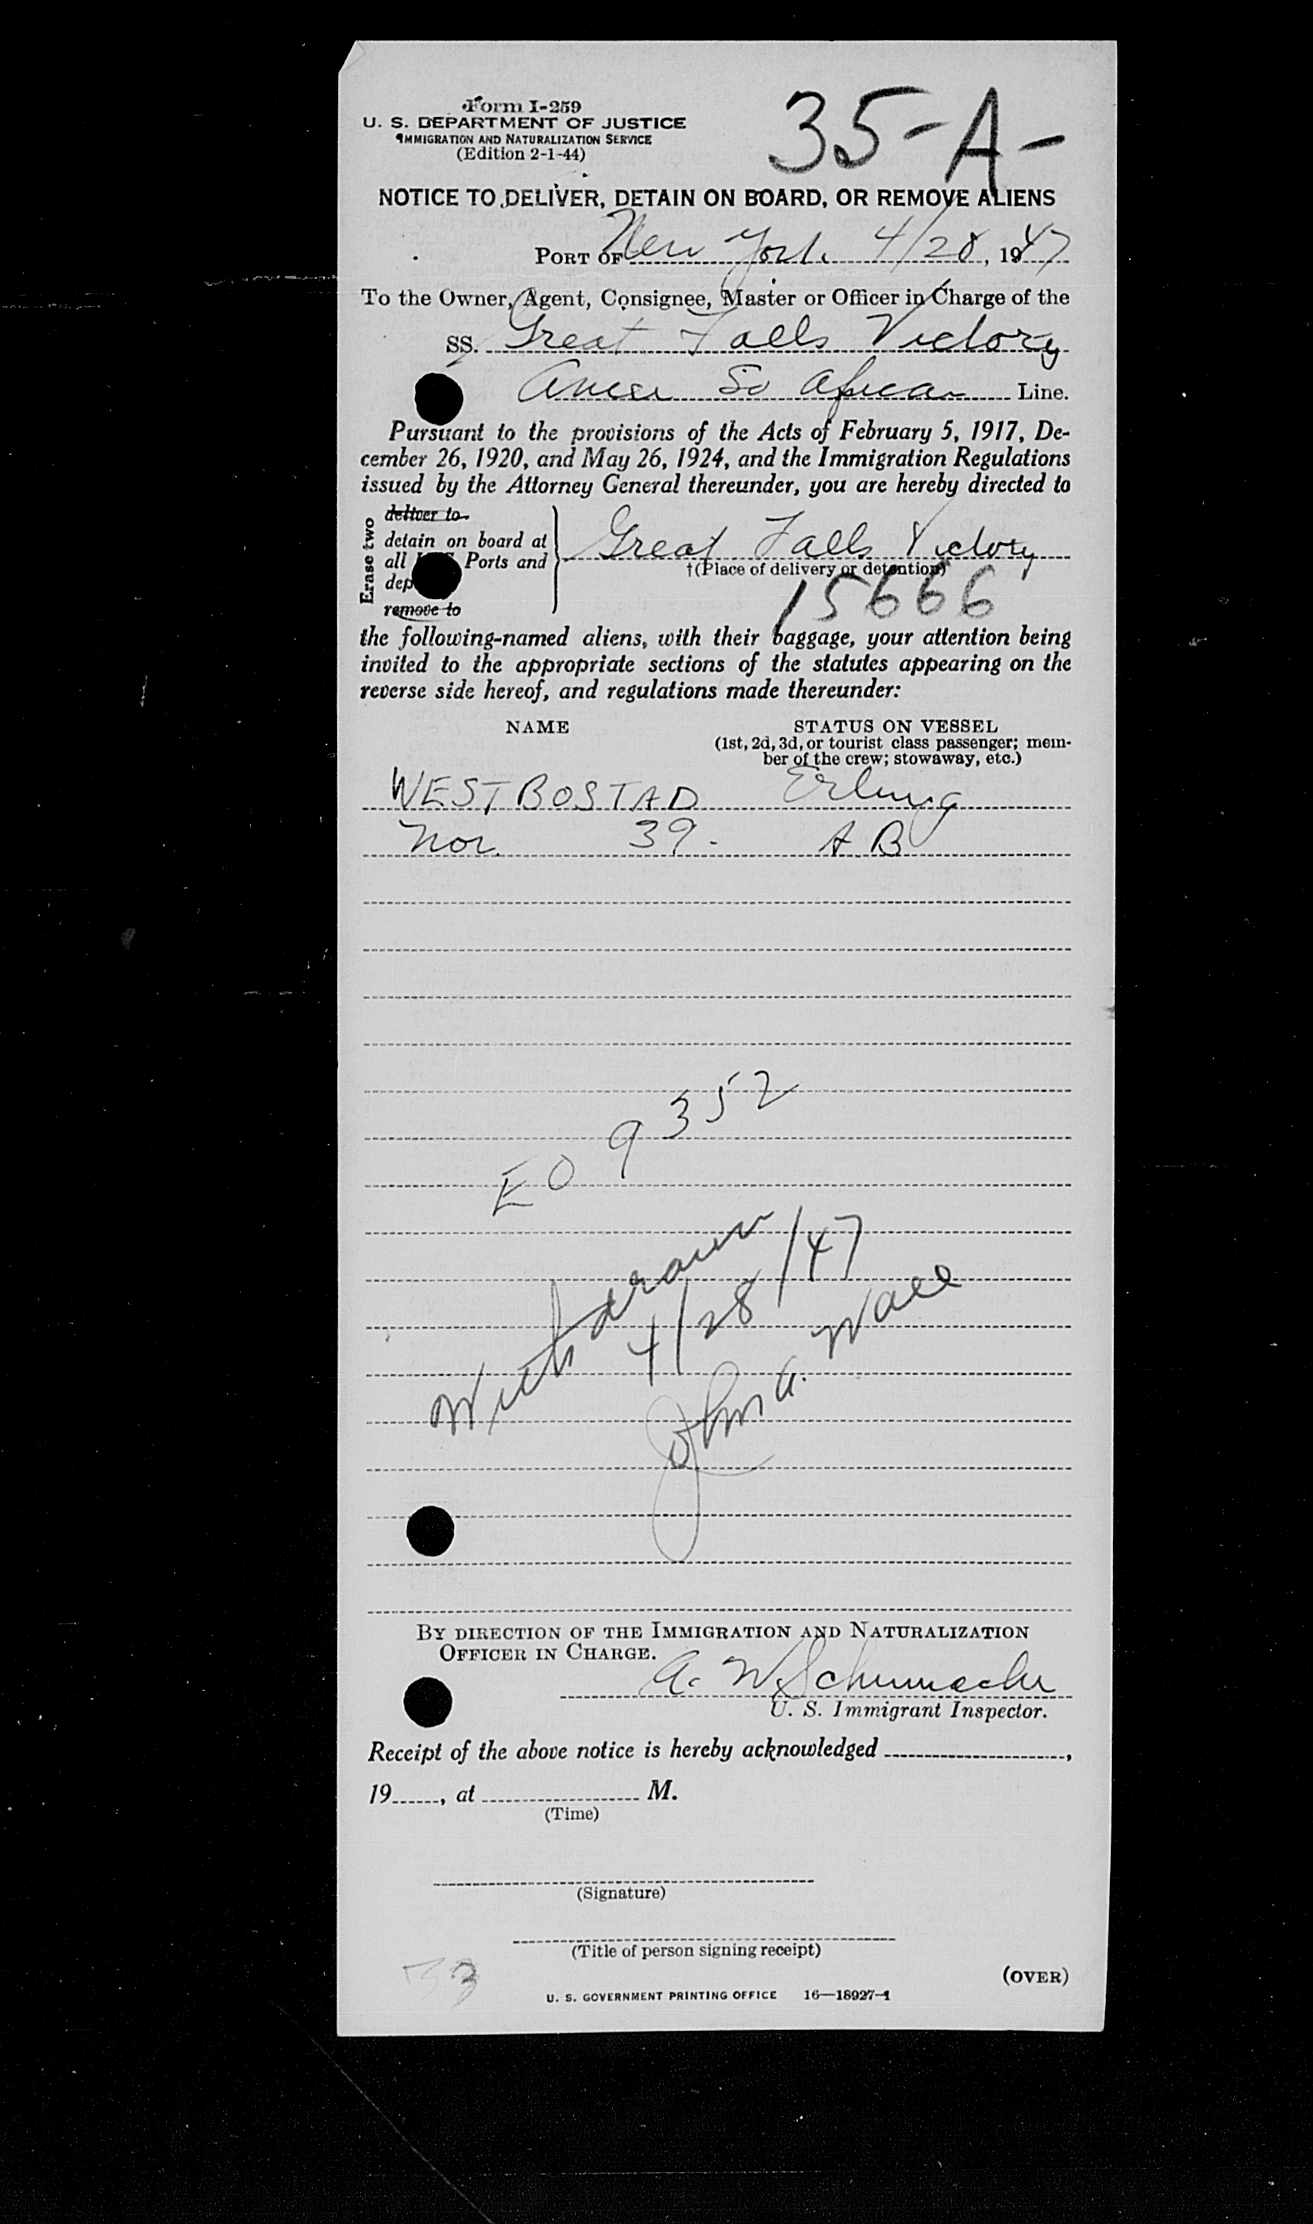 Form I-259
35-A-
U. S. DEPARTMENT OF JUSTICE
IMMIGRATION AND NATURALIZATION SERVICE
(Edition 2-1-44)
NOTICE TO DELIVER, DETAIN ON BOARD, OR REMOVE ALIENS
PORT OF New York 4/28, 1947
To the Owner, Agent, Consignee, Master or Officer in Charge of the
SS. Great Falls Victory
Amer So African Line.
Pursuant to the provisions of the Acts of February 5, 1917, De-
cember 26, 1920, and May 26, 1924, and the Immigration Regulations
issued by the Attorney General thereunder, you are hereby directed to
Erase two
deliver to
detain on board at
all Ports and
dep
remove to
Great Falls Victory
†(Place of delivery or detention)
15666
the following-named aliens, with their baggage, your attention being
invited to the appropriate sections of the statutes appearing on the
reverse side hereof, and regulations made thereunder:
NAME STATUS ON VESSEL
(1st, 2d, 3d, or tourist class passenger; mem-
ber of the crew; stowaway, etc.)
WESTBOSTAD Erling
Nor. 39. A B
EO 9352
Withdrawn
4/28/47
John A. Wall
BY DIRECTION OF THE IMMIGRATION AND NATURALIZATION
OFFICER IN CHARGE.
A. W. Schumacher
U. S. Immigrant Inspector.
Receipt of the above notice is hereby acknowledged ,
19 , at M.
(Time)
(Signature)
(Title of person signing receipt)
(OVER)
U. S. GOVERNMENT PRINTING OFFICE 16—18927-1